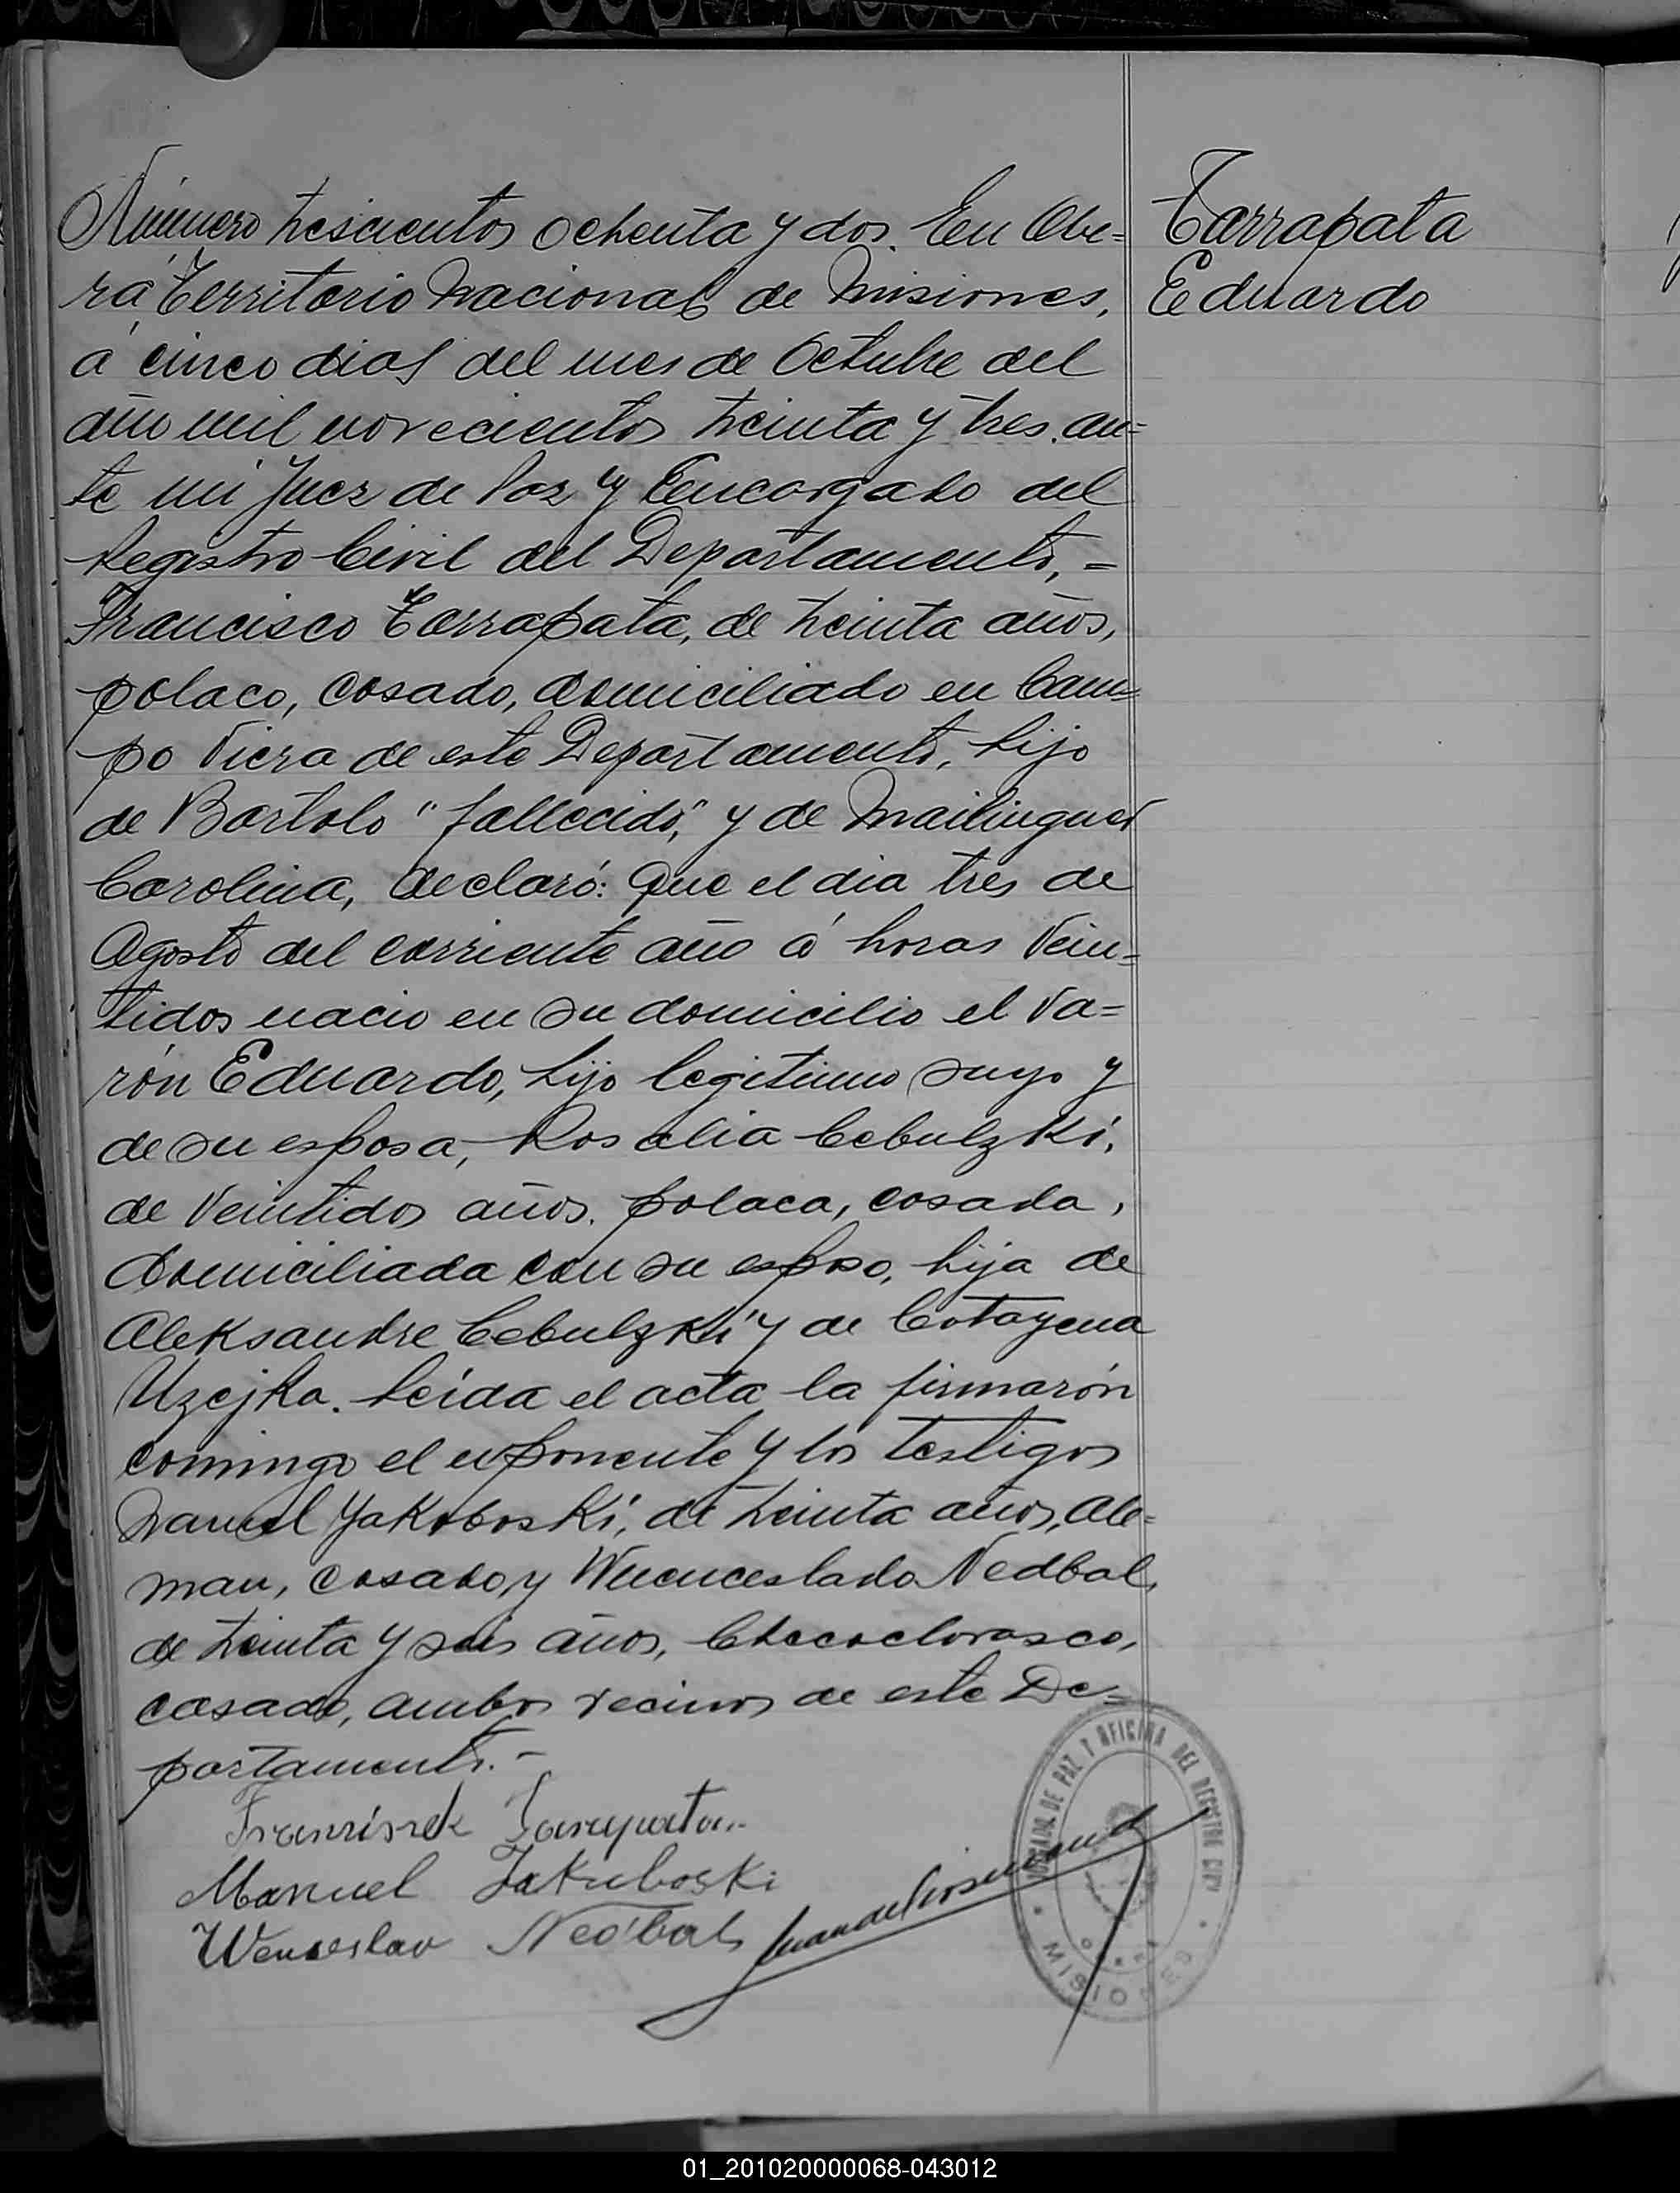 Número trescientos ochenta y dos. En Obe=
rá Territorio Nacional de Misiones,
á cinco dias del mes de Octubre del
año mil novecientos treinta y tres. an=
te mi Juez de Paz y Encargado del
Registro Civil del Departamento, =
Francisco Tarrapata, de treinta años,
polaco, casado, domiciliado en Cam=
po Viera de este Departamento, hijo
de Bartolo "fallecido," y de Mailinguer
Carolina, declaró: Que el dia tres de
Agosto del corriente año á horas Vein=
tidos nacio en su domicilio el Va=
rón Eduardo, hijo legitimo suyo y
de su esposa, Rosalia Cebulzki,
de Veintidos años. polaca, casada,
domiciliada con su esposo, hija de
Aleksandre Cebulzki y de Catayena
Uzejka. Leida el acta la firmarón
comingo el exponente y los testigos
Manuel Yakoboski, de treinta años, Ale=
man, casado, y Wuenceslado Nedbal,
de treinta y seis años, Checoeslovasco,
casado, ambos vecinos de este De=
partamento. -
Tarrapata
Eduardo
Franciszek
Manuel Jakuboski
Wenceslav Nedbal
JUZGADO DE PAZ Y OFICINA DEL REGISTRO CIVIL
MISIONES
01_201020000068-043012